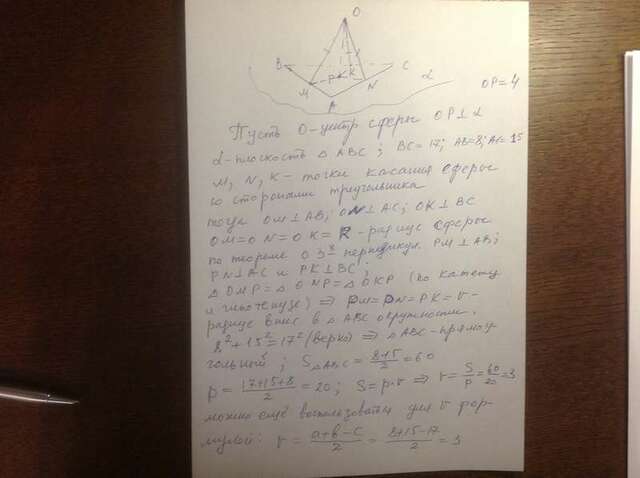 O
B
C
P
K
M
N
A
α
OP=4
Пусть O-центр сферы OP⊥α
α-плоскость △ABC; BC=17; AB=8; AC=15
M, N, K - точки касания сферы
со сторонами треугольника
тогда OM⊥AB; ON⊥AC; OK⊥BC
OM=ON=OK=R-радиус сферы
по теореме о 3ˣ перпендикул. PM⊥AB;
PN⊥AC и PK⊥BC;
△OMP=△ONP=△OKP (по катету
и гипотенузе) ⇒ PM=PN=PK=r-
радиус впис в △ABC окружности.
8²+15²=17² (верно) ⇒ △ABC-прямоу
гольный; S△ABC = 8·15/2 = 60
p = 17+15+8/2 = 20; S=p·r ⇒ r = S/p = 60/20 = 3
можно ещё воспользоваться для r фор
мулой: r = a+b-c/2 = 8+15-17/2 = 3